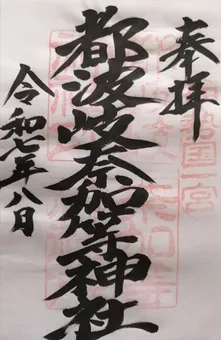 奉拝
伊勢国一宮
都波岐奈加等神社
令和七年八日